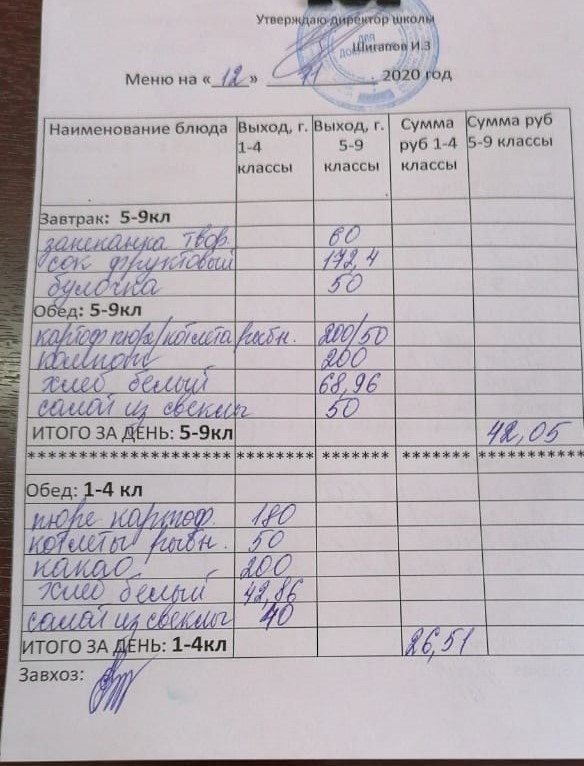 Утверждаю директор школы
Шигапов И.З
Меню на « 12 » 11 2020 год
Наименование блюда Выход, г. 1-4 классы Выход, г. 5-9 классы Сумма руб 1-4 классы Сумма руб 5-9 классы
Завтрак: 5-9кл
запеканка твор. 60
сок фруктовый 172,4
булочка 50
Обед: 5-9кл
картоф пюре/котлета рыбн. 200/50
компот 200
хлеб белый 68,96
салат из свеклы 50
ИТОГО ЗА ДЕНЬ: 5-9кл 42,05
******************** ******** ******* ******* ***********
Обед: 1-4 кл
пюре картоф. 180
котлеты рыбн. 50
какао 200
хлеб белый 42,86
салат из свеклы 40
ИТОГО ЗА ДЕНЬ: 1-4кл 26,51
Завхоз: